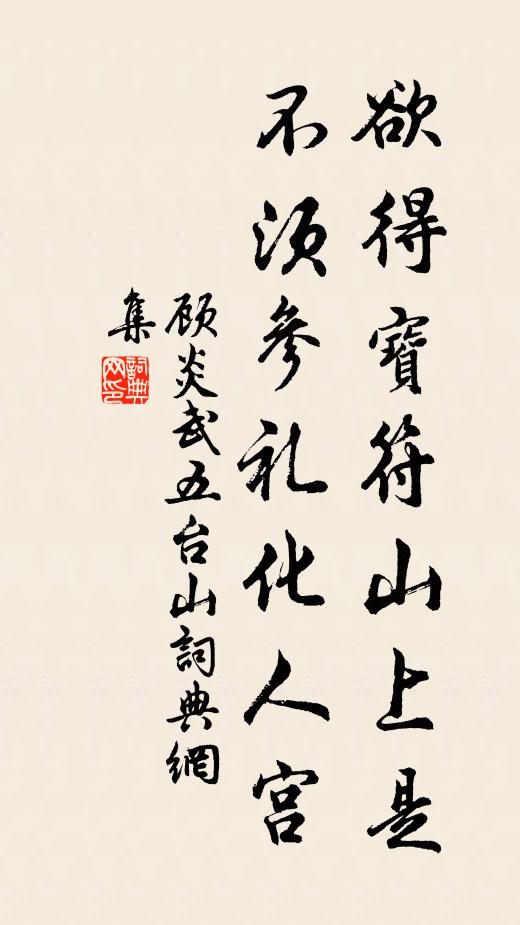 欲得寶符山上是
不須參礼化人宫
顾炎武五台山詞典網
集
詞典网印